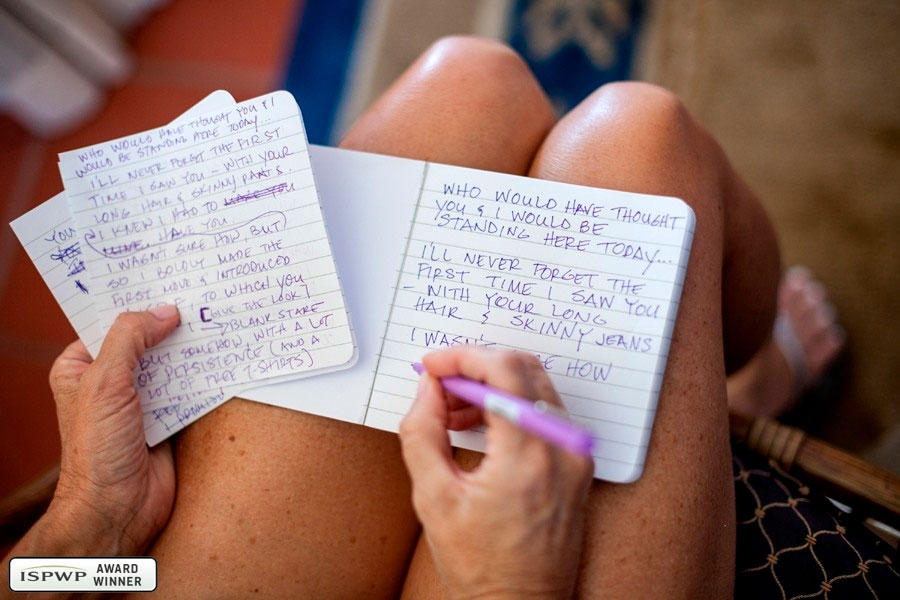 WHO WOULD HAVE THOUGHT YOU & I
WOULD BE STANDING HERE TODAY...
I'LL NEVER FORGET THE FIRST
TIME I SAW YOU - WITH YOUR
LONG HAIR & SKINNY PANTS.
I KNEW I HAD TO
HAVE YOU
I WASN'T SURE HOW, BUT
SO I BOLDLY MADE THE
FIRST MOVE & INTRODUCED
TO WHICH YOU
GIVE THE LOOK
BLANK STARE
BUT SOMEHOW, WITH A LOT
OF PERSISTENCE (AND A
LOT OF FREE T-SHIRTS)
YOU
WHO WOULD HAVE THOUGHT
YOU & I WOULD BE
STANDING HERE TODAY...
I'LL NEVER FORGET THE
FIRST TIME I SAW YOU
- WITH YOUR LONG
HAIR & SKINNY JEANS
I WASN' HOW
ISPWP AWARD
WINNER